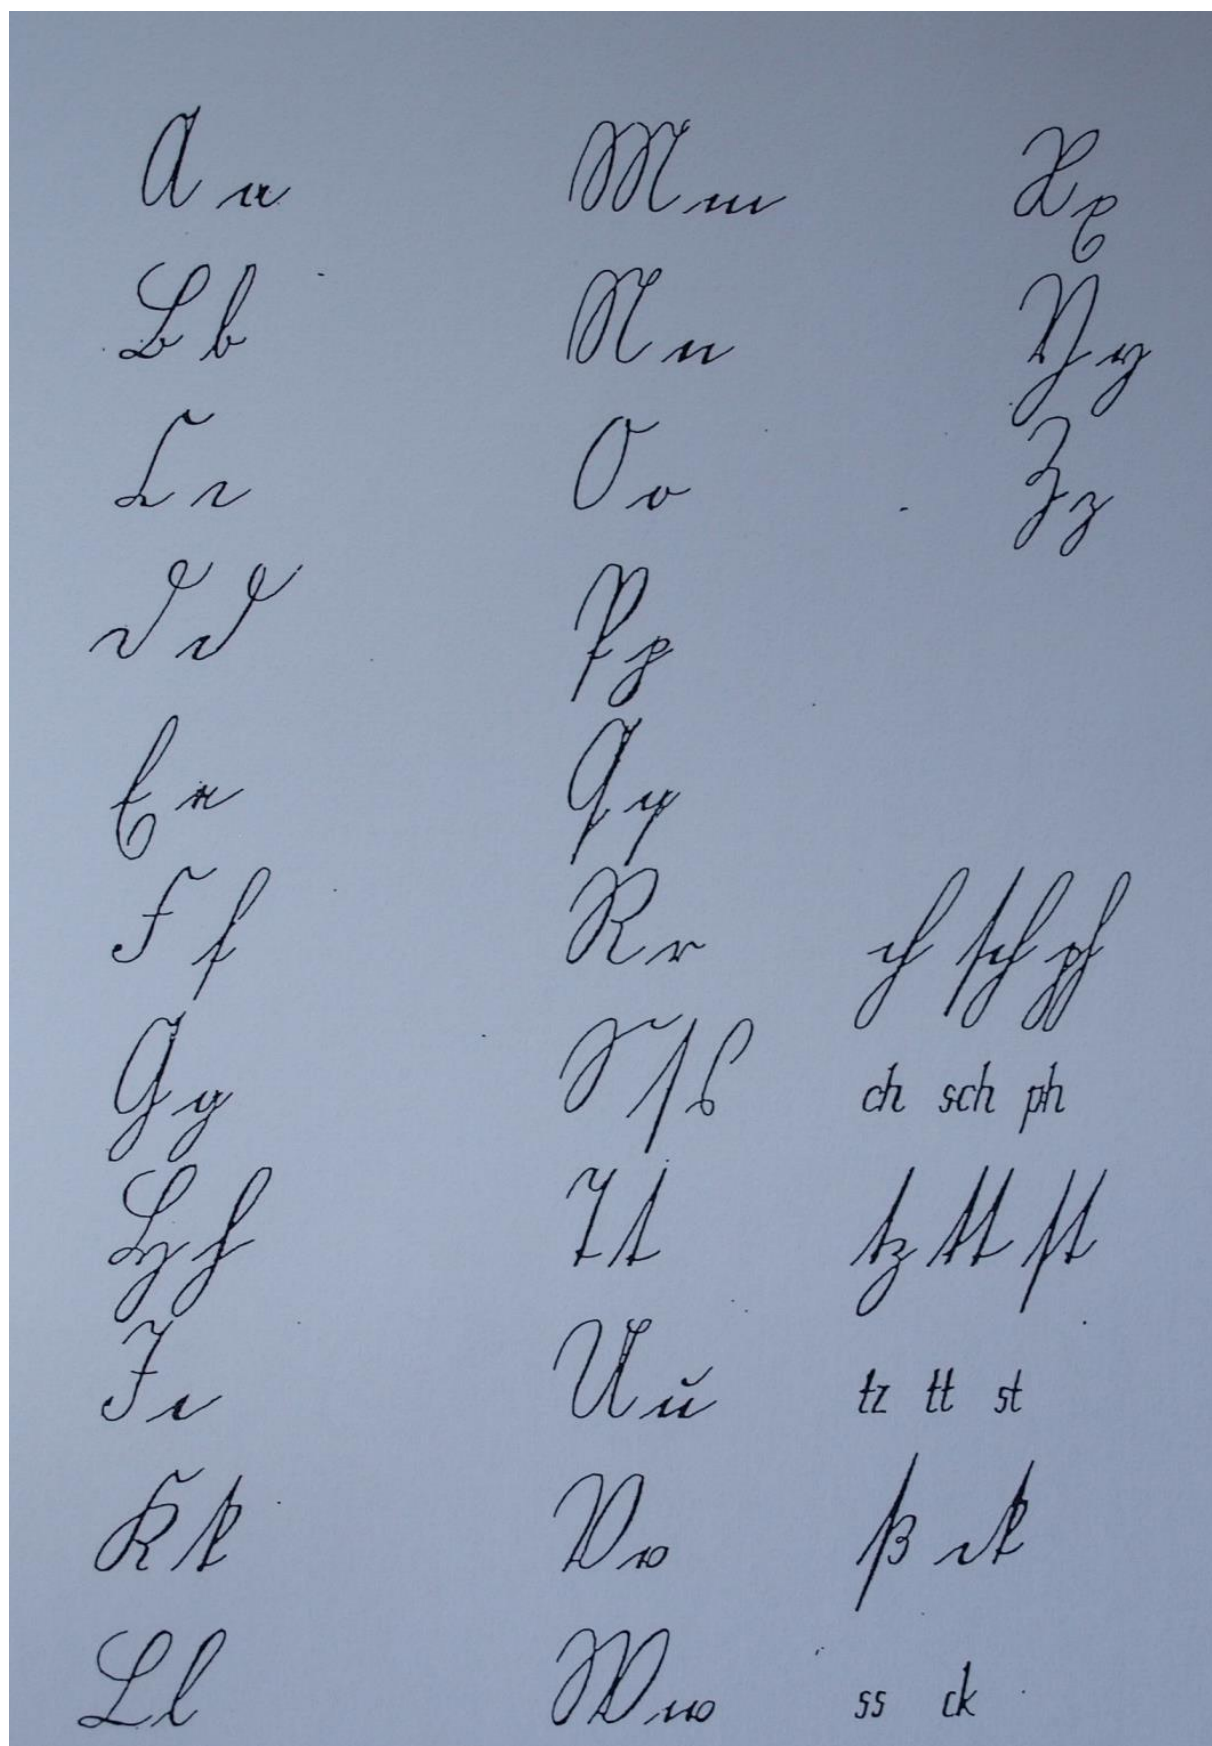 A a
B b
C c
D d
E e
F f
G g
H h
I i
K k
L l
M m
N n
O o
P p
Q q
R r
S ſ s
T t
U u
V v
W w
X x
Y y
Z z
ch sch ph
ch sch ph
tz tt st
tz tt st
ß ck
ss ck